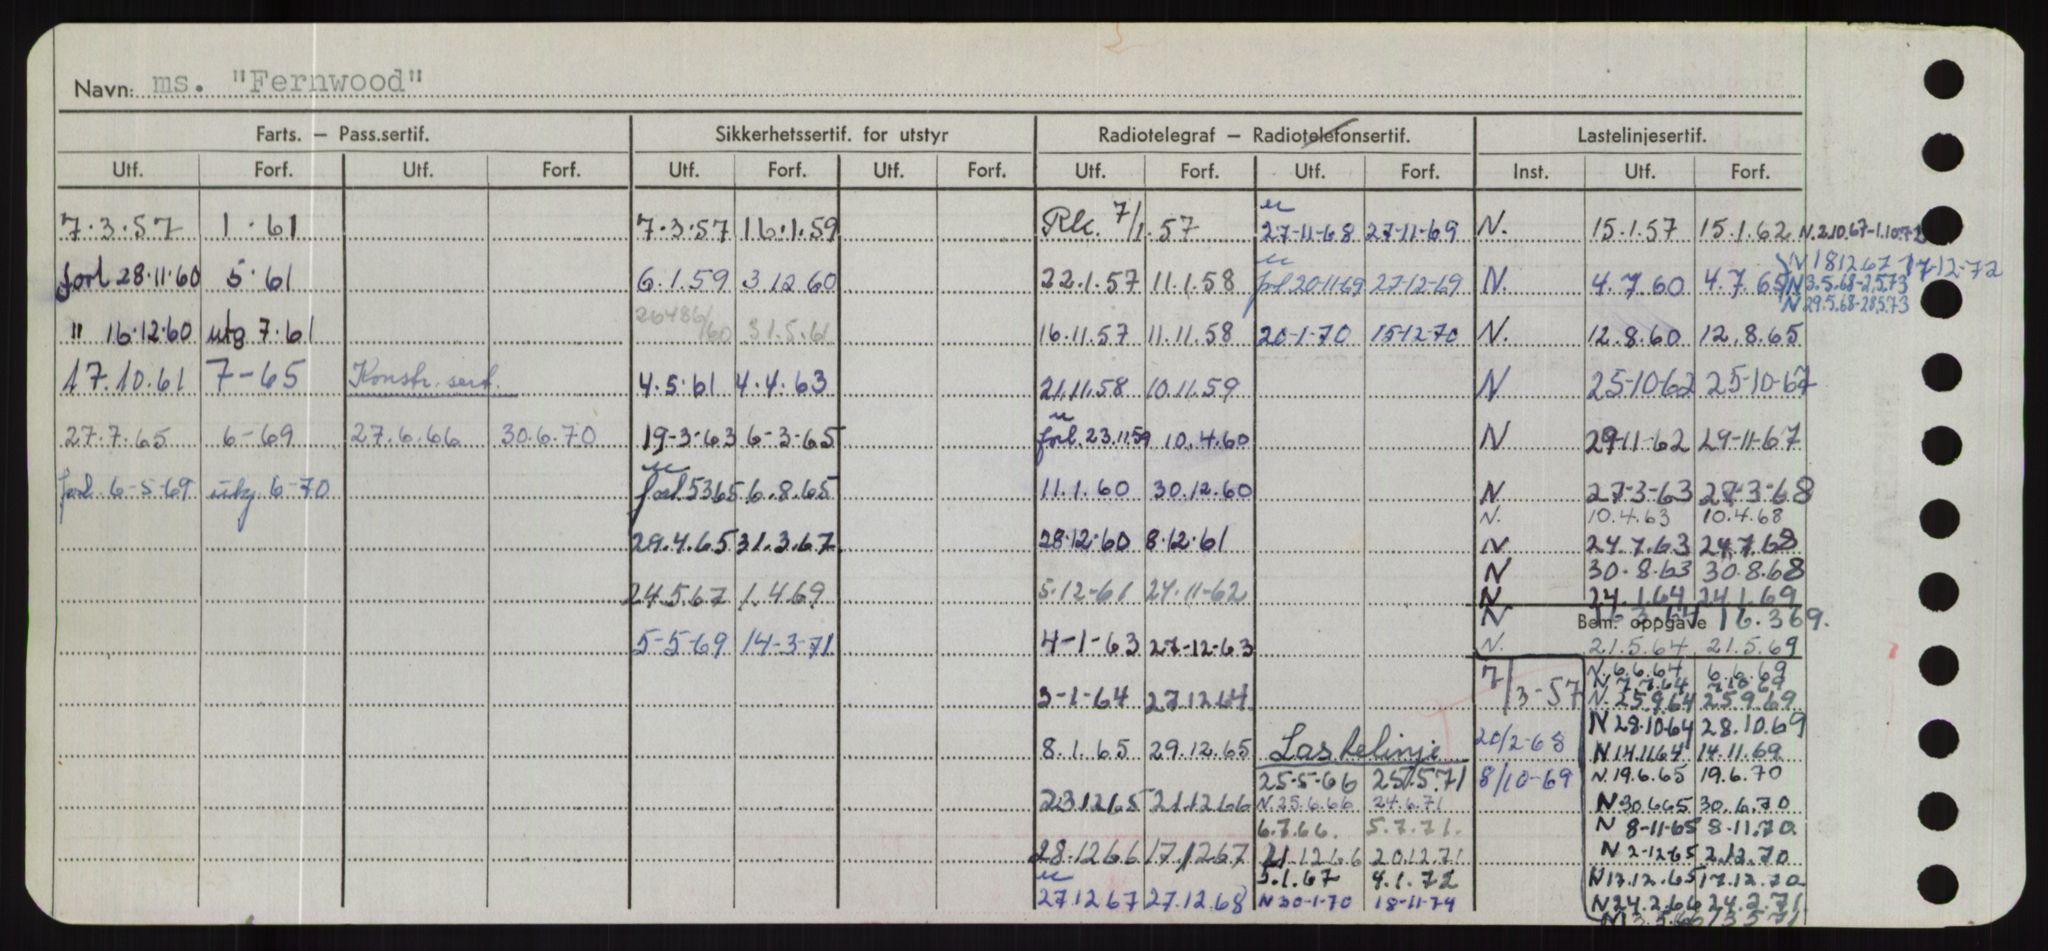 Navn: ms. "Fernwood"
Farts. — Pass.sertif. Sikkerhetssertif. for utstyr Radiotelegraf — Radiotelefonsertif. Lastelinjesertif.
Utf. Forf. Utf. Forf. Utf. Forf. Utf. Forf. Utf. Forf. Utf. Forf. Inst. Utf. Forf.
7.3.57 1.61 7.3.57 16.1.59 Rk. 7/1.57 27-11-68 27-11-69 N. 15.1.57 15.1.62 N.2.10.67-1.10.72
N 181267 17-12-72
forl 28.11.60 5.61 6.1.59 3.12.60 22.1.57 11.1.58 forl 20-11-69 27-12-69 N. 4.7.60 4.7.65 N3.5.68-2.5.73
N 29.5.68-28.5.73
" 16.12.60 utg 7.61 26486/60 31.5.61 16.11.57 11.11.58 20-1-70 15-12-70 N. 12.8.60 12.8.65
17.10.61 7-65 Konstr. sert. 4.5.61 4.4.63 21.11.58 10.11.59 N 25-10-62 25-10-67
27.7.65 6-69 27.6.66 30.6.70 19-3-63 6-3-65 forl. 23.11.59 10.4.60 N 29-11-62 29-11-67
forl 6-5-69 utg. 6-70 forl. 5365 6.8.65 11.1.60 30.12.60 N 27-3-63 27-3-68
N. 10.4.63 10.4.68
29.4.65 31.3.67 28.12.60 8.12.61 N 24.7.63 24.7.68
N 30.8.63 30.8.68
24.5.67 1.4.69 5.12-61 24.11-62 N 24.1.64 24.1.69
N Bem. oppgave 16.3.69.
5-5-69 14-3-71 4-1-63 27-12-63 N. 21.5.64 21.5.69
7/3-57 N. 6.6.64 6.6.69
N. 7.7.64
3-1-64 27.12.64 N. 25.9.64 25.9.69
N 28.10.64 28.10.69
8.1.65 29.12.65 Lastelinje 20/2-68 N 14.11.64 14.11.69
25-5-66 25.5.71 8/10-69 N. 19.6.65 19.6.70
23.12.65 21.12.66 N. 25.6.66 24.6.71 N 30.6.65 30.6.70
6.7.66. 5.7.71. N 8-11-65 8.11.70
28.12.66 17.12.67 21.12.66 20.12.71 N 2-12-65 2.12.70
5.1.67 4.1.72 N 17.12.65 17.12.70
27.12.67 27.12.68 N 30-1-70 18-11-74 N 24.2.66 24.2.71
N 13.5.66 13.5.71